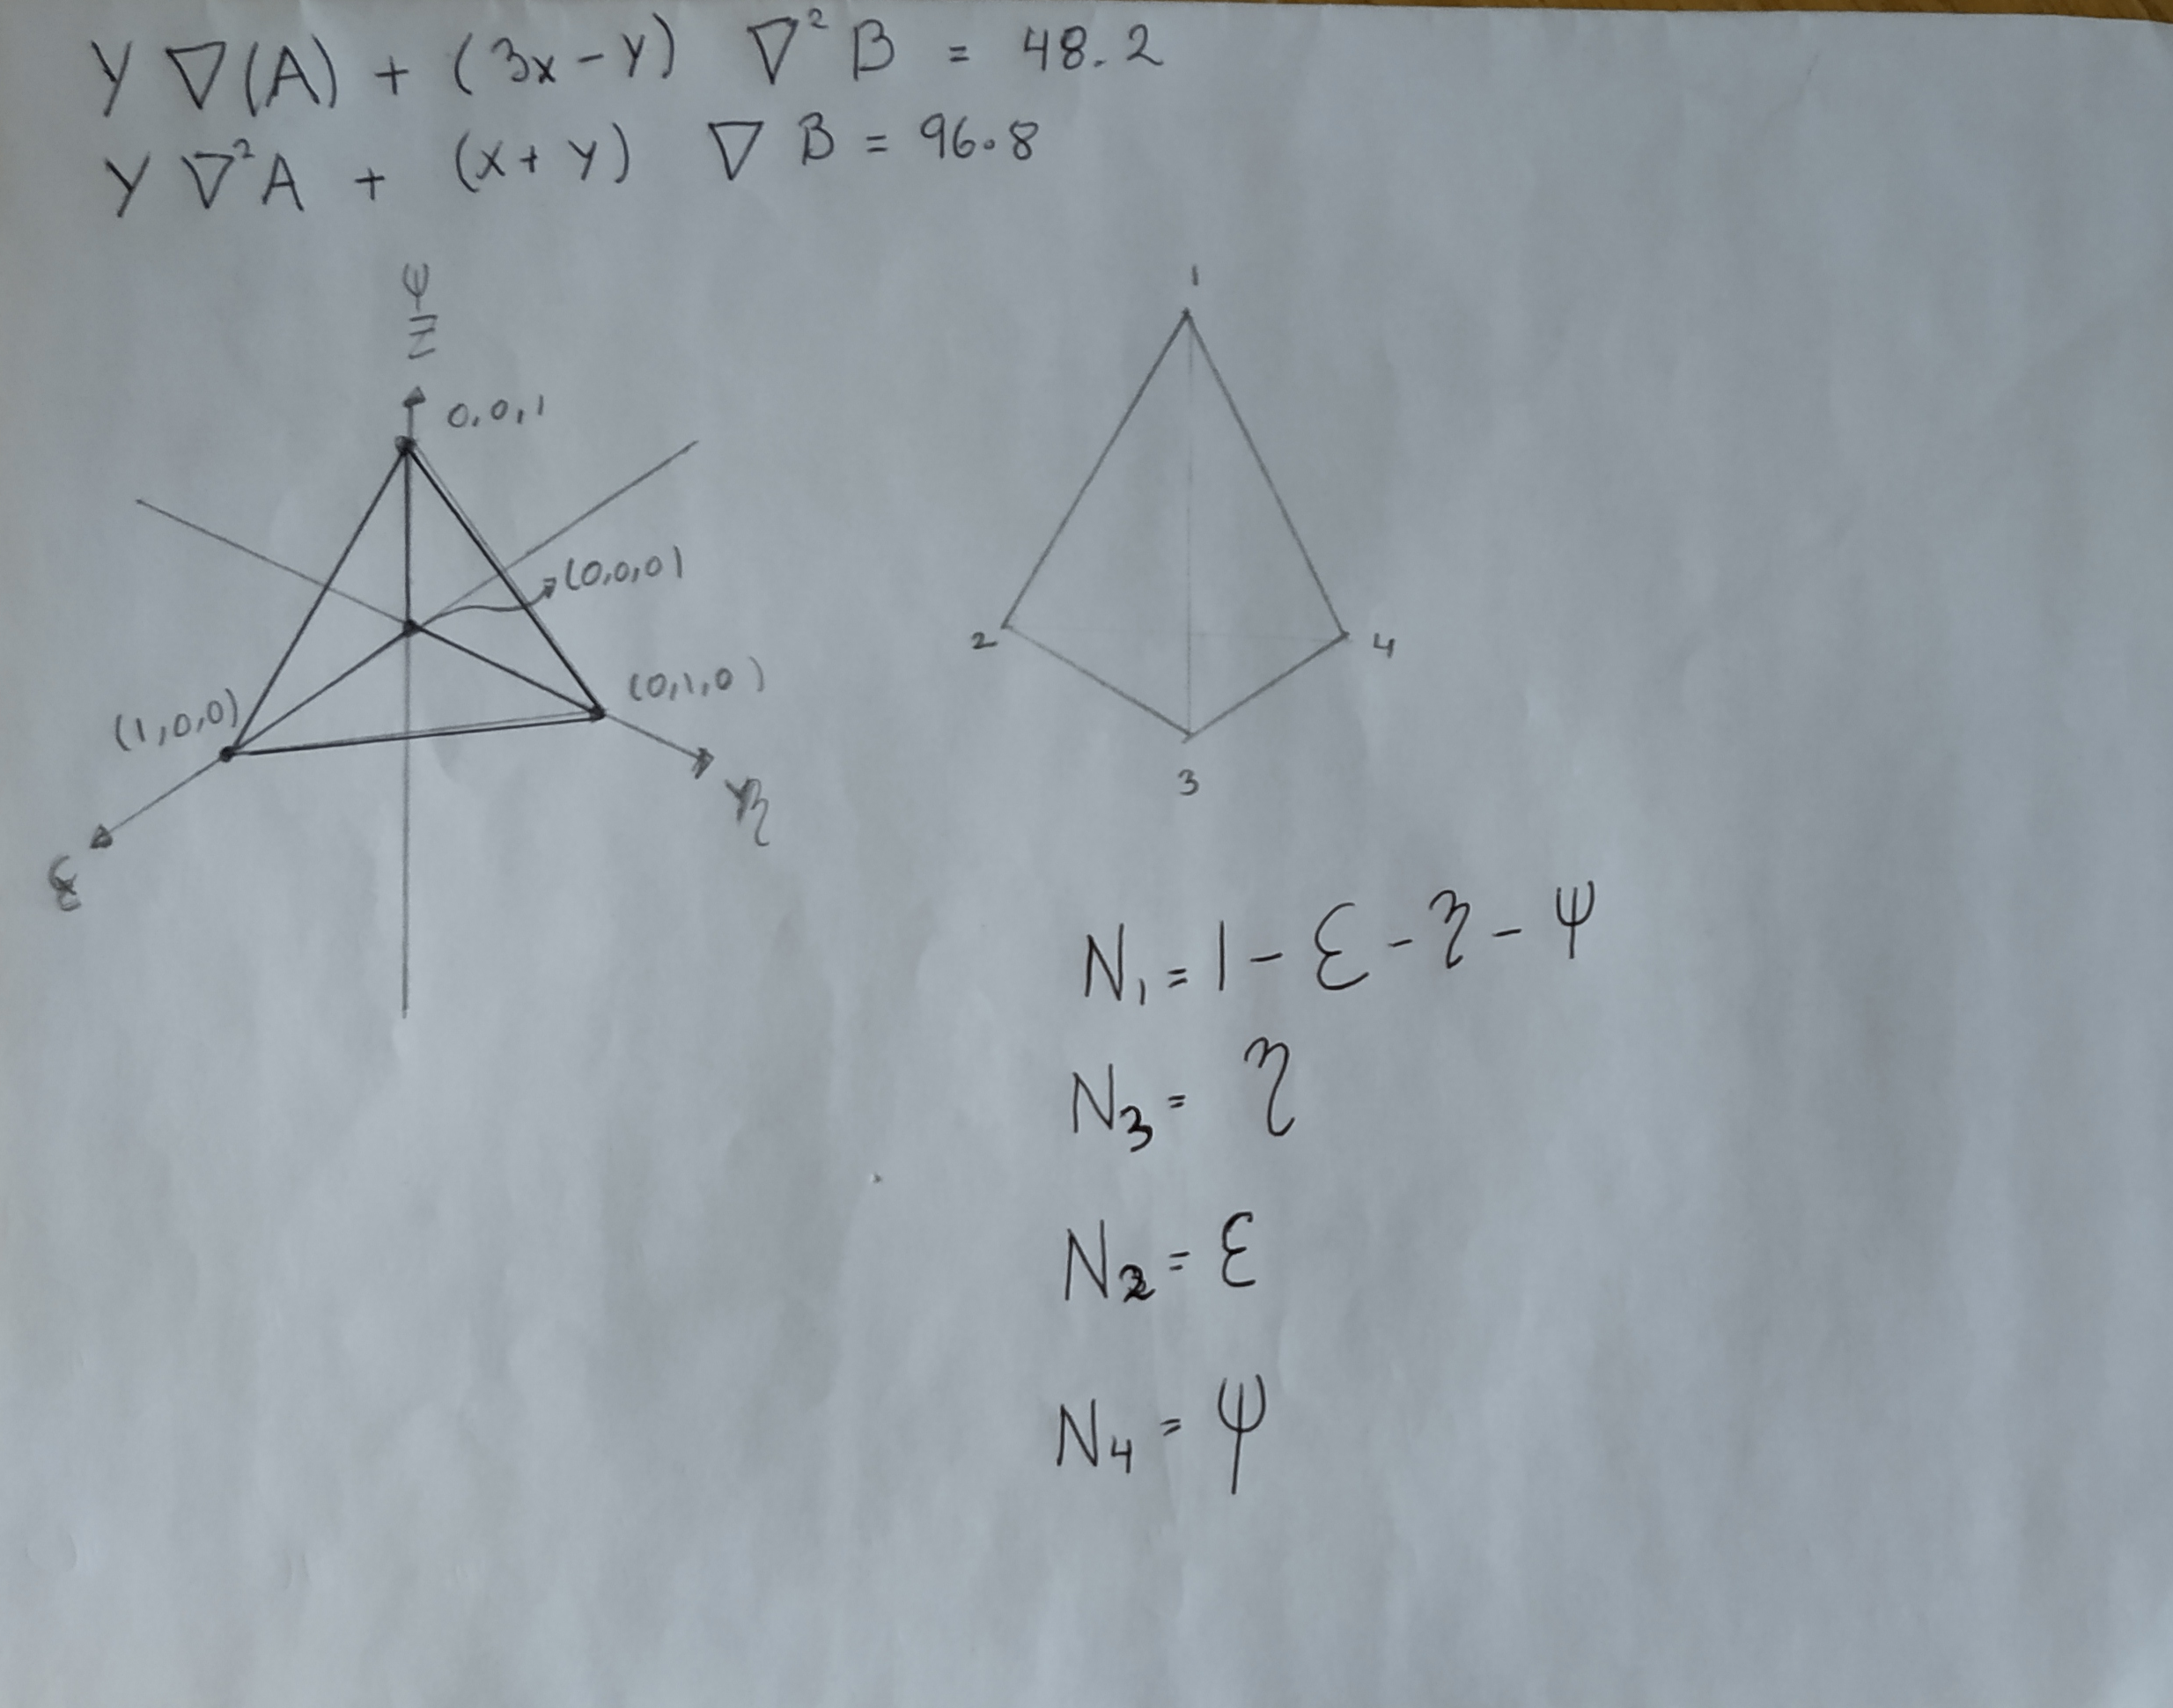 Y ∇(A) + (3x - y) ∇² B = 48.2
Y ∇²A + (x + y) ∇ B = 96.8
Ψ
Z
0,0,1
(0,0,0)
(0,1,0)
(1,0,0)
η
ε
1
2
4
3
N₁ = 1 - ε - η - Ψ
N₃ = η
N₂ = ε
N₄ = Ψ